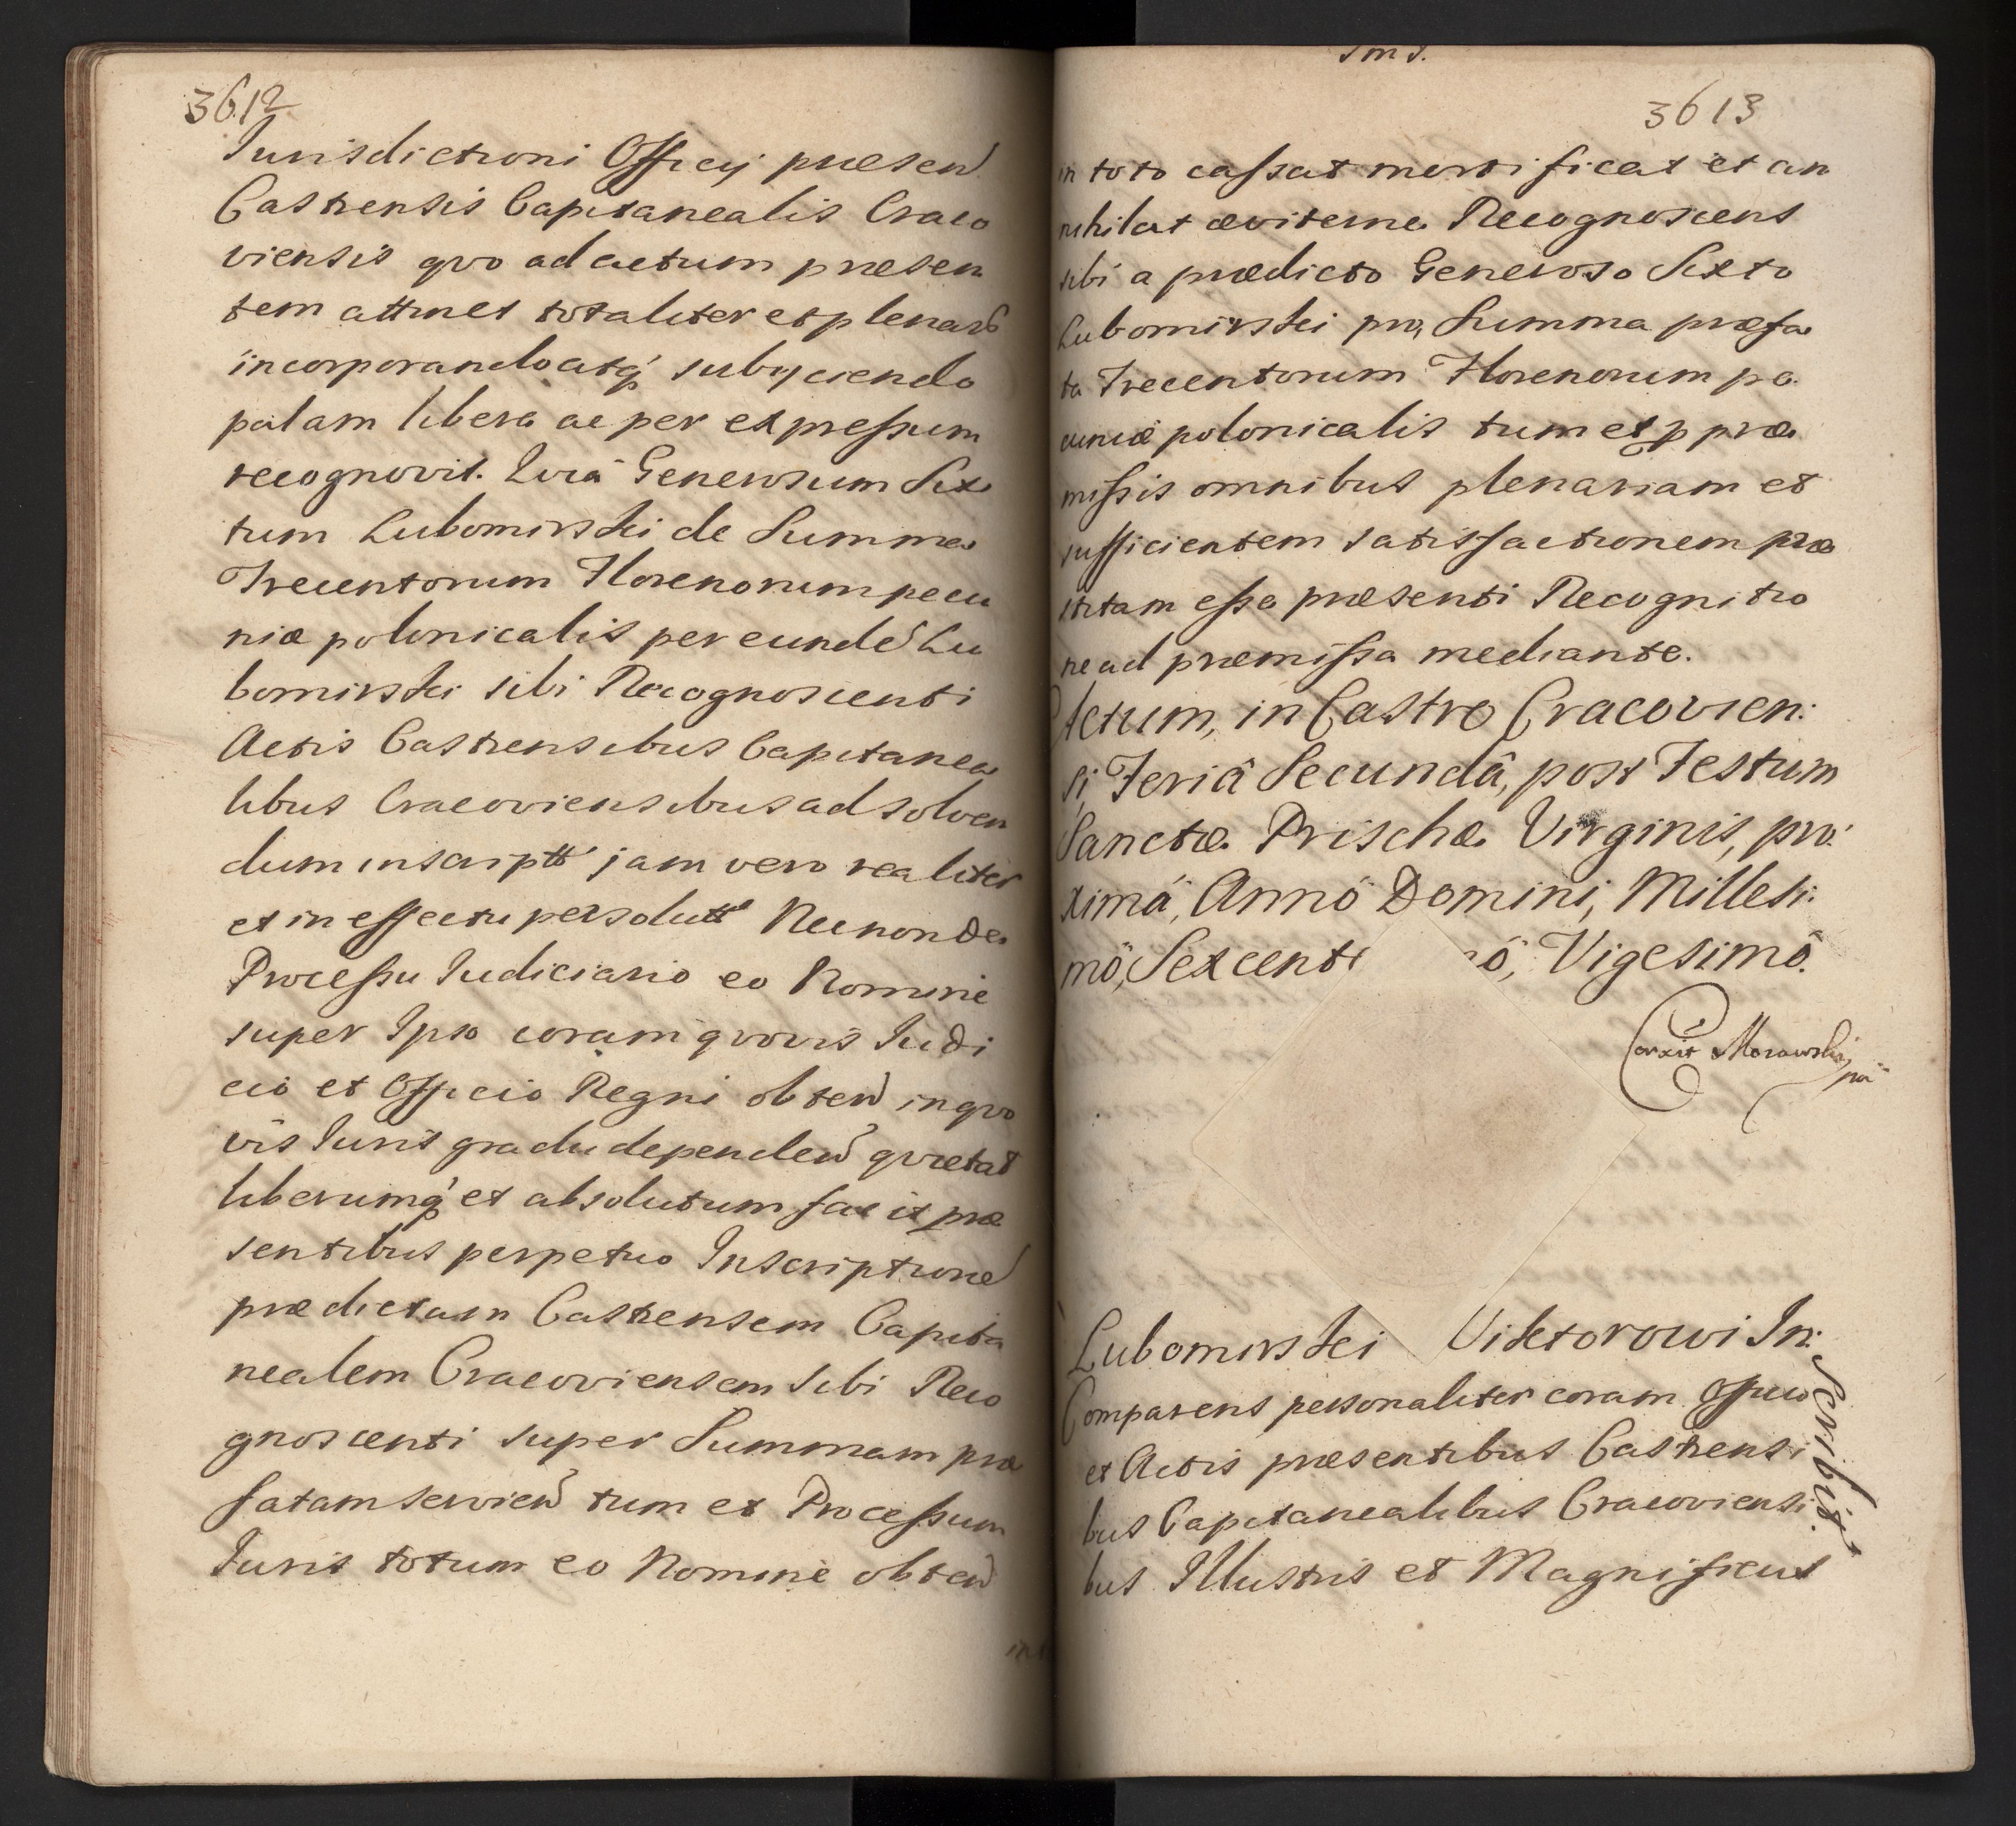 3612
Iurisdictioni Officij præsen
Castrensis Capitanealis Craco
viensis qvo ad actum præsen
tem attinet totaliter et plenarie
incorporando atq subijciendo
palam libere ac per expressum
recognovit. Qvia Generosum Six
tum Lubomirski de Summa
Trecentorum Florenorum pecu
niæ polonicalis per eunde Lu
bomirski sibi Recognoscenti
Actis Castrensibus Capitanea
libus Cracoviensibus ad solven
dum inscriptt jam vero realiter
et in effectu persolutt Necnon de
Processu Iudiciario eo Nomine
super Ipso coram qvovis Iudi
cio et Officio Regni obten in qvo
vis Iuris gradu dependen qvietat
liberumq et absolutum facit præ
sentibus perpetuo Inscriptione
prædictam Castrensem Capita
nealem Cracoviensem sibi Reco
gnoscenti super Summam præ
fatam servien tum et Processum
Iuris totum eo Nomine obten
3613
in toto cassat mortificat et an
nihilat æviterne Recognoscens
sibi a prædicto Generoso Sixto
Lubomirski pro Summa præfa
ta Trecentorum Florenorum pe
cuniæ polonicalis tum et p præ
missis omnibus plenariam et
sufficientem satisfactionem præ
stitam esse præsenti Recognitio
ne ad præmissa mediante.
Actum, in Castro Cracovien:
si Feriâ Secundâ, post Festum
Sanctæ Prischæ Virginis, pro:
ximâ, Annô Domini, Millesi:
mô, Sexcent nô, Vigesimô.
Corrxit Morawski pa
Lubomirski Viktorowi In:
scribit.
Comparens personaliter coram Officio
et Actis præsentibus Castrensi
bus Capitanealibus Cracoviensi
bus Illustris et Magnificus